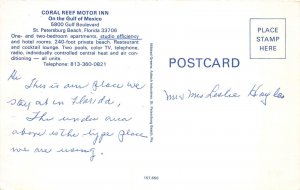 CORAL REEF MOTOR INN
On the Gulf of Mexico
5800 Gulf Boulevard
St. Petersburg Beach, Florida 33706
One- and two-bedroom apartments, studio efficiency
and hotel rooms. 240-foot private beach. Restaurant
and cocktail lounge. Two pools, color TV, telephone,
radio, individually controlled central heat and air con-
ditioning — all units.
Telephone: 813-360-0821
Hi This is our place we
stay at in Florida,
The under area
above is the type place
we are using.
POSTCARD
PLACE
STAMP
HERE
Mr Mrs Leslie
157,666